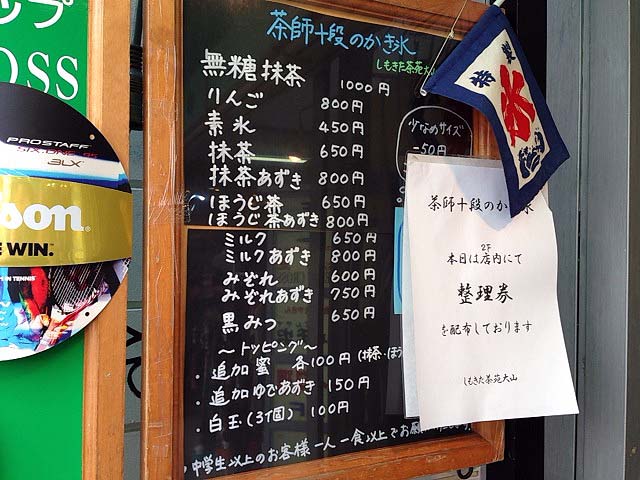 ップ
OSS
PROSTAFF
SIX.ONE 95
BLX
son.
E WIN.
N TENNIS
茶師十段のかき氷
しもきた茶苑大山
無糖抹茶 1000円
りんご 800円
素氷 450円
抹茶 650円
抹茶あずき 800円
ほうじ茶 650円
ほうじ茶あずき 800円
ミルク 650円
ミルクあずき 800円
みぞれ 600円
みぞれあずき 750円
黒みつ 650円
〜トッピング〜
・追加蜜 各100円 (抹茶・ほう
・追加ゆであずき 150円
・白玉(3個) 100円
・中学生以上のお客様一人一食以上でお願
少なめサイズ
-50円
特製
氷
茶師十段のかき氷
2F
本日は店内にて
整理券
を配布しております
しもきた茶苑大山